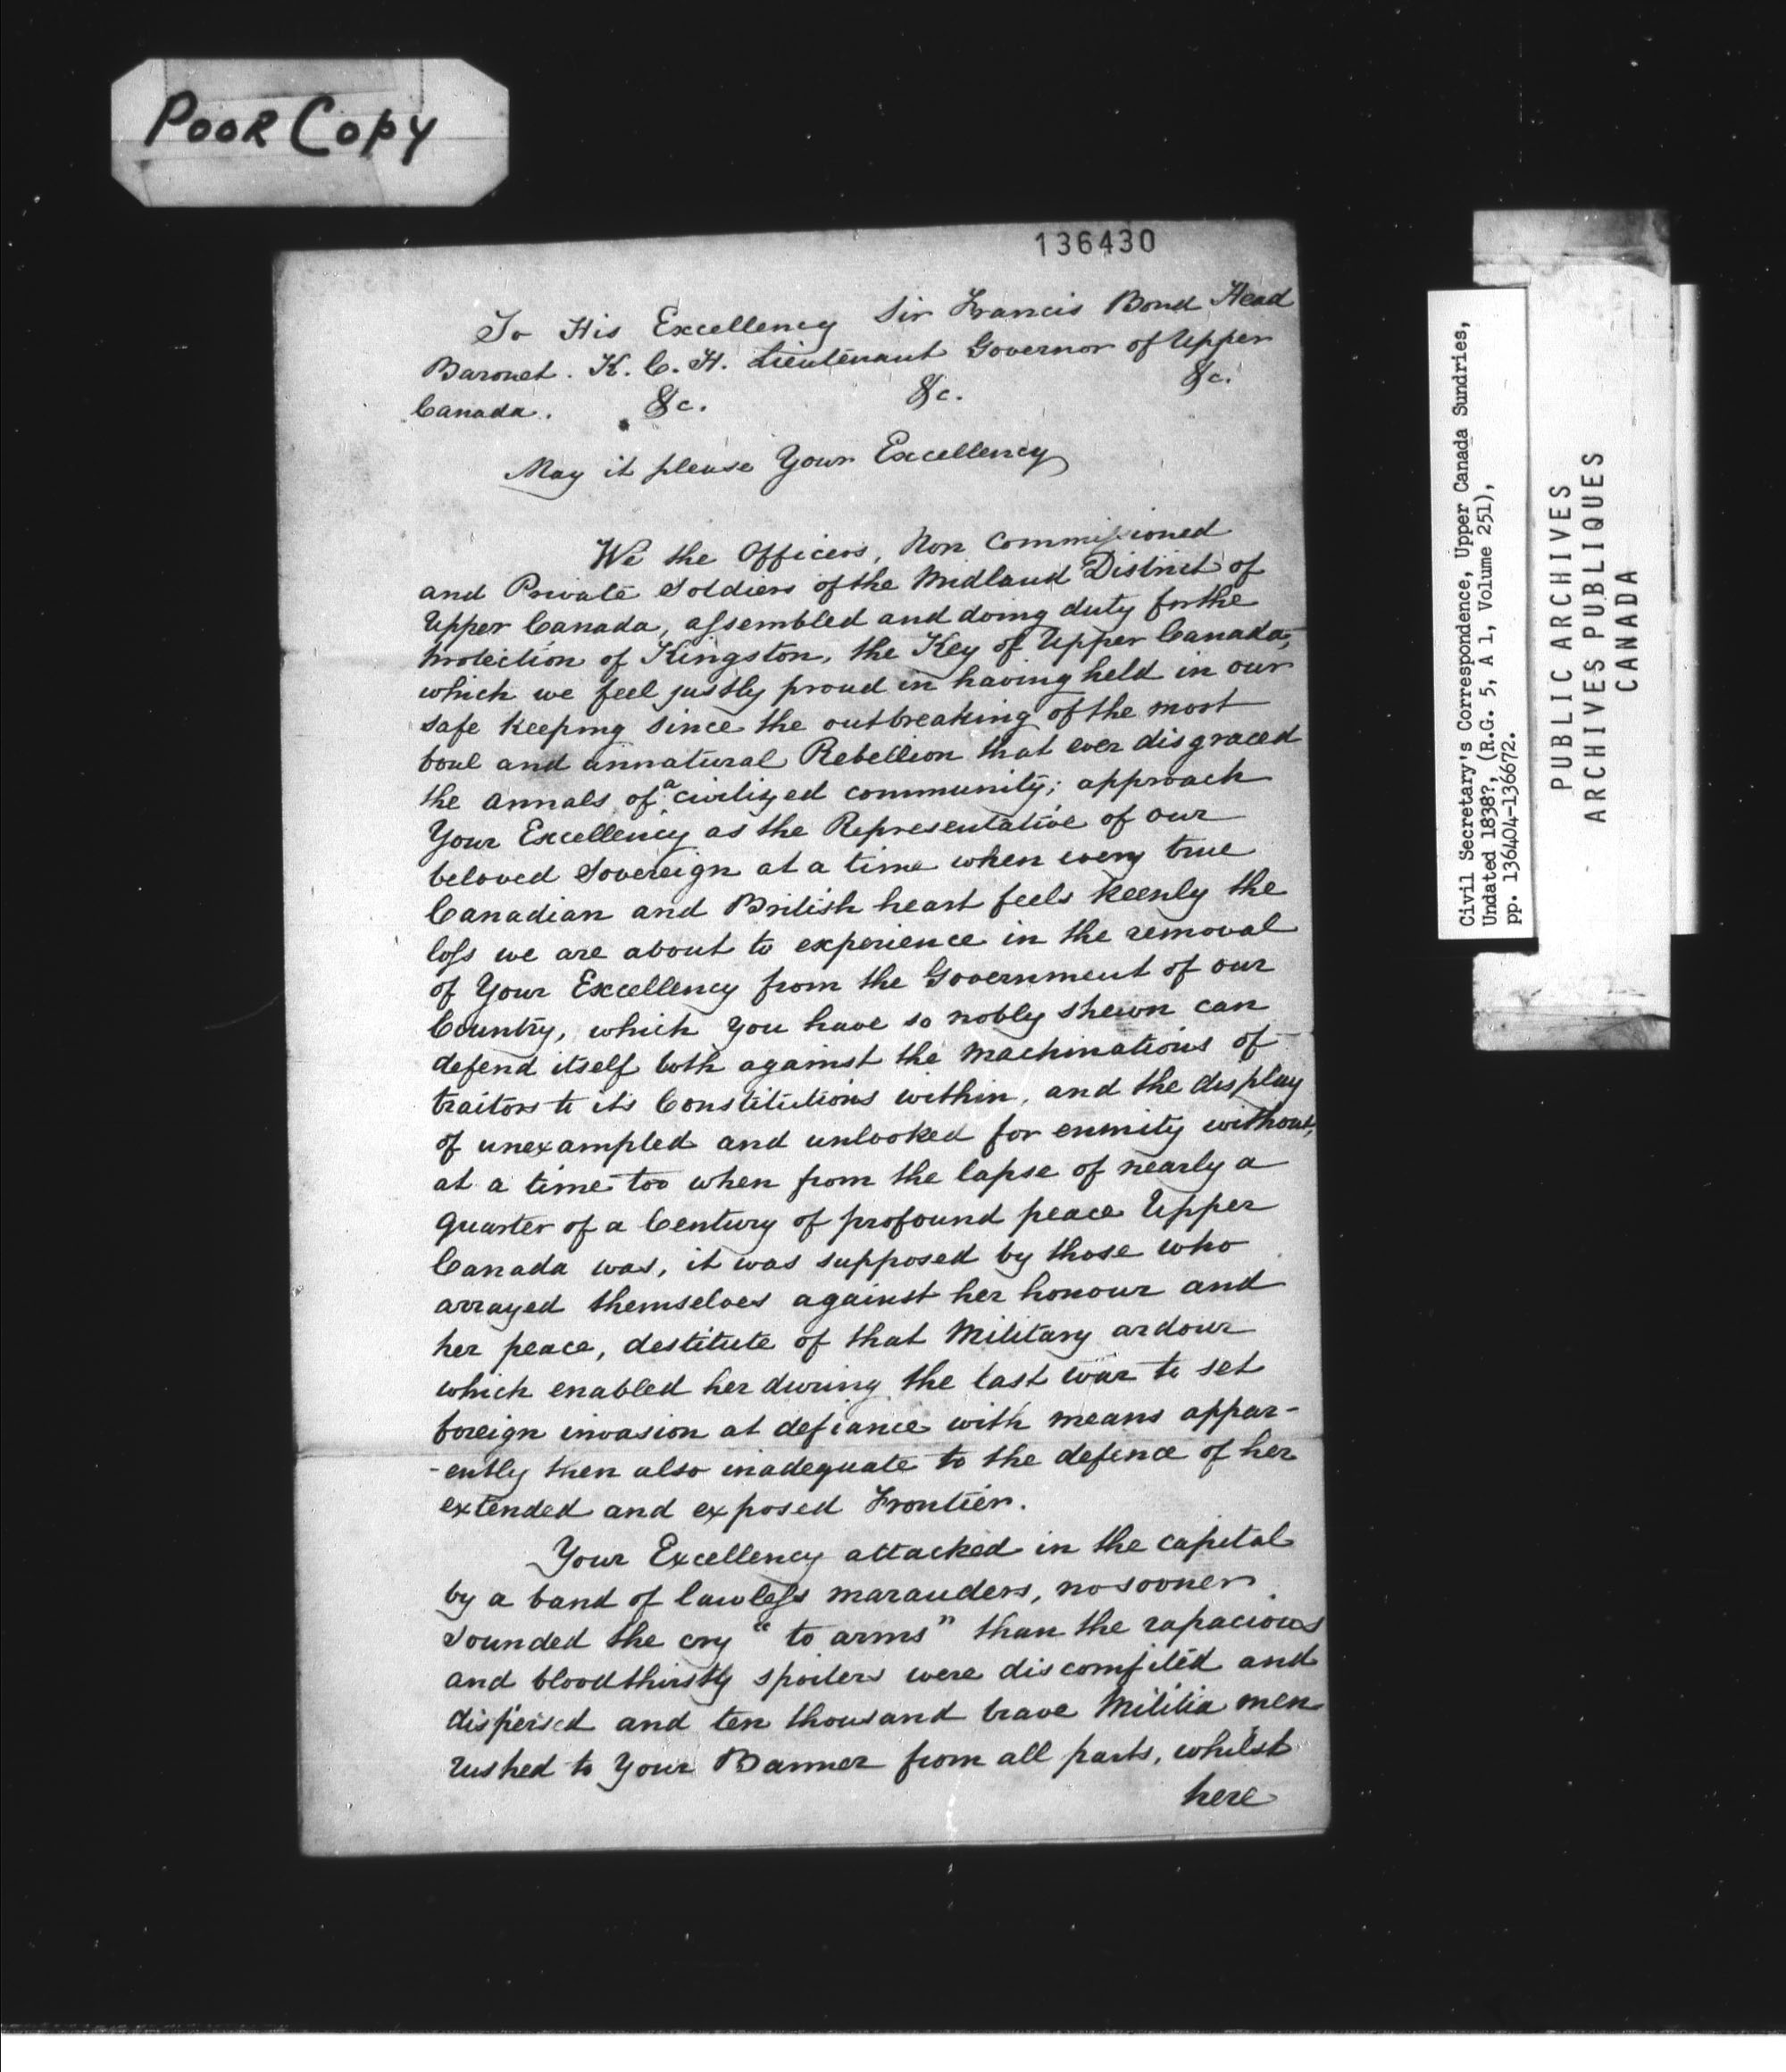 POOR COPY
136430
To His Excellency Sir Francis Bond Head
Baronet. K. C. H. Lieutenant Governor of Upper
Canada. &c. &c. &c.
May it please Your Excellency
We the Officers, Non Commissioned
and Private Soldiers of the Midland District of
Upper Canada, assembled and doing duty for the
protection of Kingston, the Key of Upper Canada,
which we feel justly proud in having held in our
safe keeping since the outbreaking of the most
foul and unnatural Rebellion that ever disgraced
the annals of a civilized community; approach
Your Excellency as the Representative of our
beloved Sovereign at a time when every true
Canadian and British heart feels keenly the
loss we are about to experience in the removal
of Your Excellency from the Government of our
Country, which you have so nobly shewn can
defend itself both against the machinations of
traitors to its Constitutions within, and the display
of unexampled and unlooked for enmity without,
at a time too when from the lapse of nearly a
quarter of a Century of profound peace Upper
Canada was, it was supposed by those who
arrayed themselves against her honour and
her peace, destitute of that Military ardour
which enabled her during the last war to set
foreign invasion at defiance with means appar-
-ently then also inadequate to the defence of her
extended and exposed Frontier.
Your Excellency attacked in the capital
by a band of lawless marauders, no sooner
sounded the cry "to arms" than the rapacious
and bloodthirsty spoilers were discomfited and
dispersed and ten thousand brave Militia men
rushed to Your Banner from all parts, whilst
here
Civil Secretary's Correspondence, Upper Canada Sundries,
Undated 1838?, (R.G. 5, A 1, Volume 251),
pp. 136404-136672.
PUBLIC ARCHIVES
ARCHIVES PUBLIQUES
CANADA